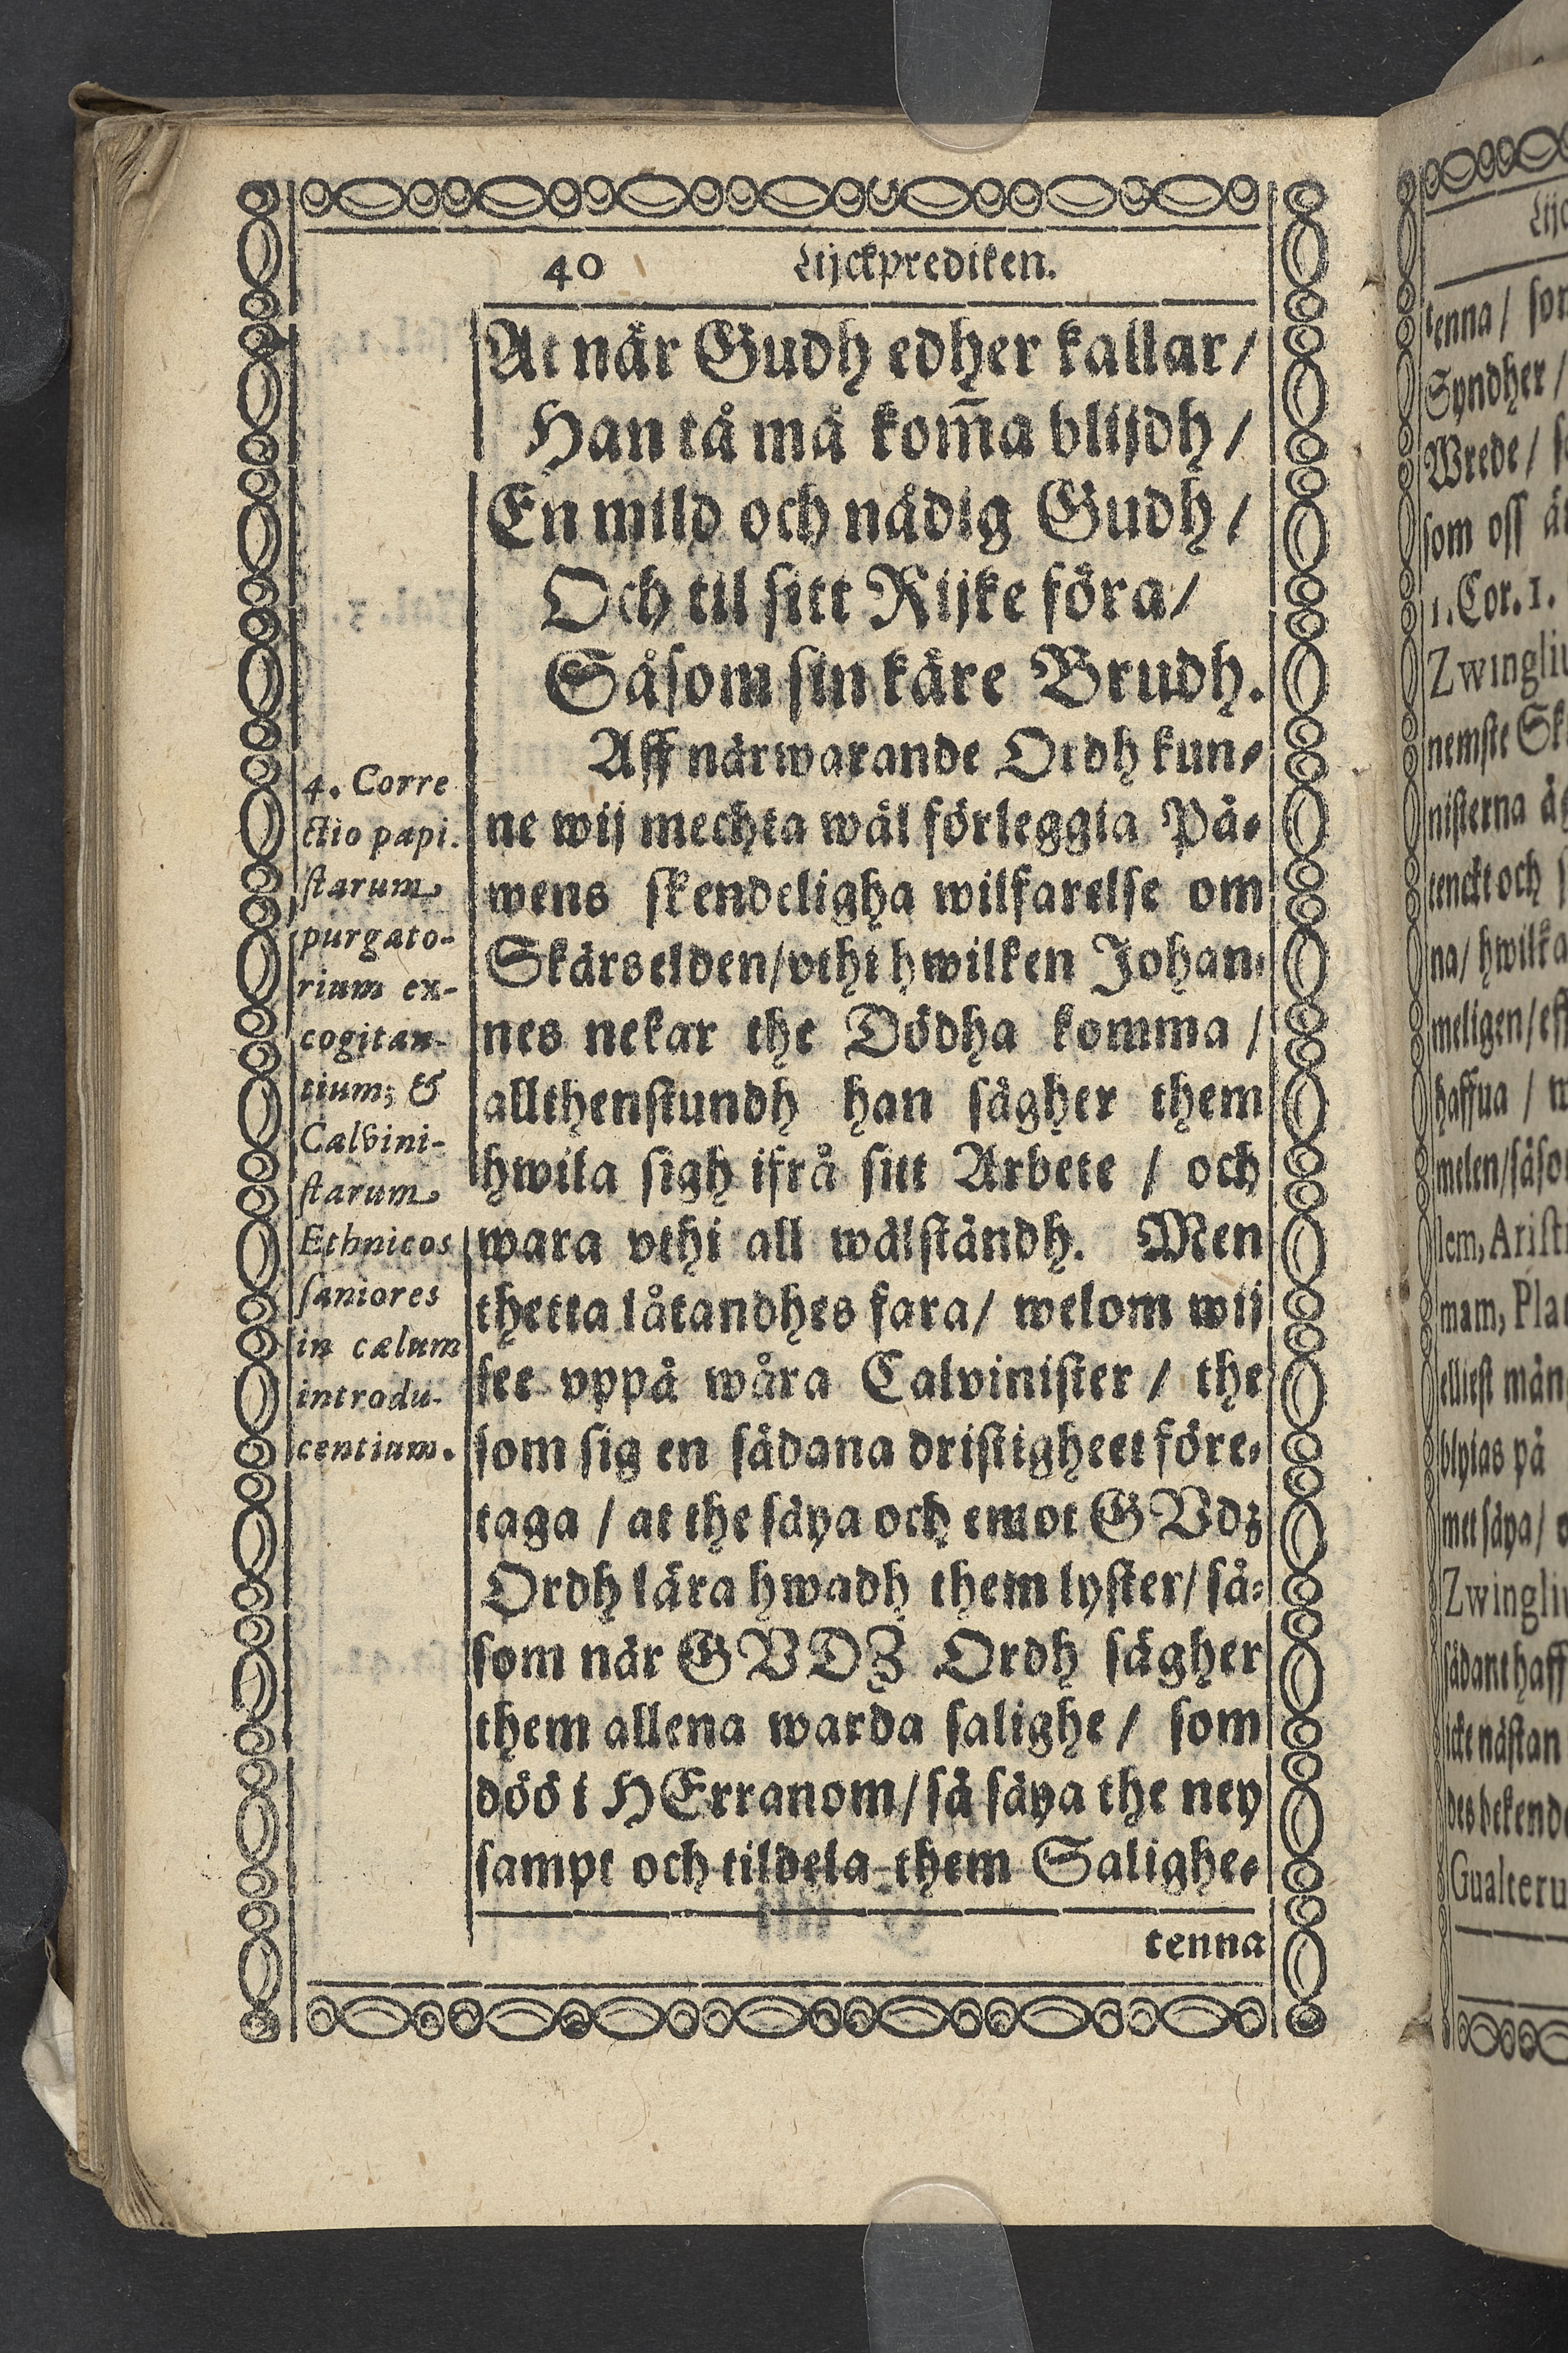 40 Lijckprediken.
At när Gudh edher kallar/
Han tå må kom̃a blijdh/
En mild och nådig Gudh/
Och til sitt Rijke föra/
Såsom sin käre Brudh.
Aff närwarande Ordh kun-
ne wij mechta wäl förleggia På-
wens skendeligha wilfarelse om
Skärselden/vthi hwilken Johan-
nes nekar the Dödha komma /
allthenstundh han sägher them
hwila sigh ifrå sitt Arbete / och
wara vthi all wälständh. Men
thetta låtandhes fara/ welom wij
see vppå wåra Calvinister / the
som sig en sådana dristigheet före-
taga / at the säya och emot GVdz
Ordh lära hwadh them lyster/ så-
som när GVDZ Ordh sägher
them allena warda salighe / som
döö i HErranom/så säya the ney
sampt och tildela them Salighe-
tenna
4. Corre
ctio papi.
starum
purgato-
rium ex-
cogitan-
tium; &
Calvini-
starum
Ethnicos
saniores
in cælum
introdu-
centium.
tenna/
Syndher /
Wrede/
som oss
1. Cor. 1.
nemste
nisterna
tenckt och
na/ hwilka
meligen/
haffua /
mam,
elliest
blyias på
met säya/
icke nästan